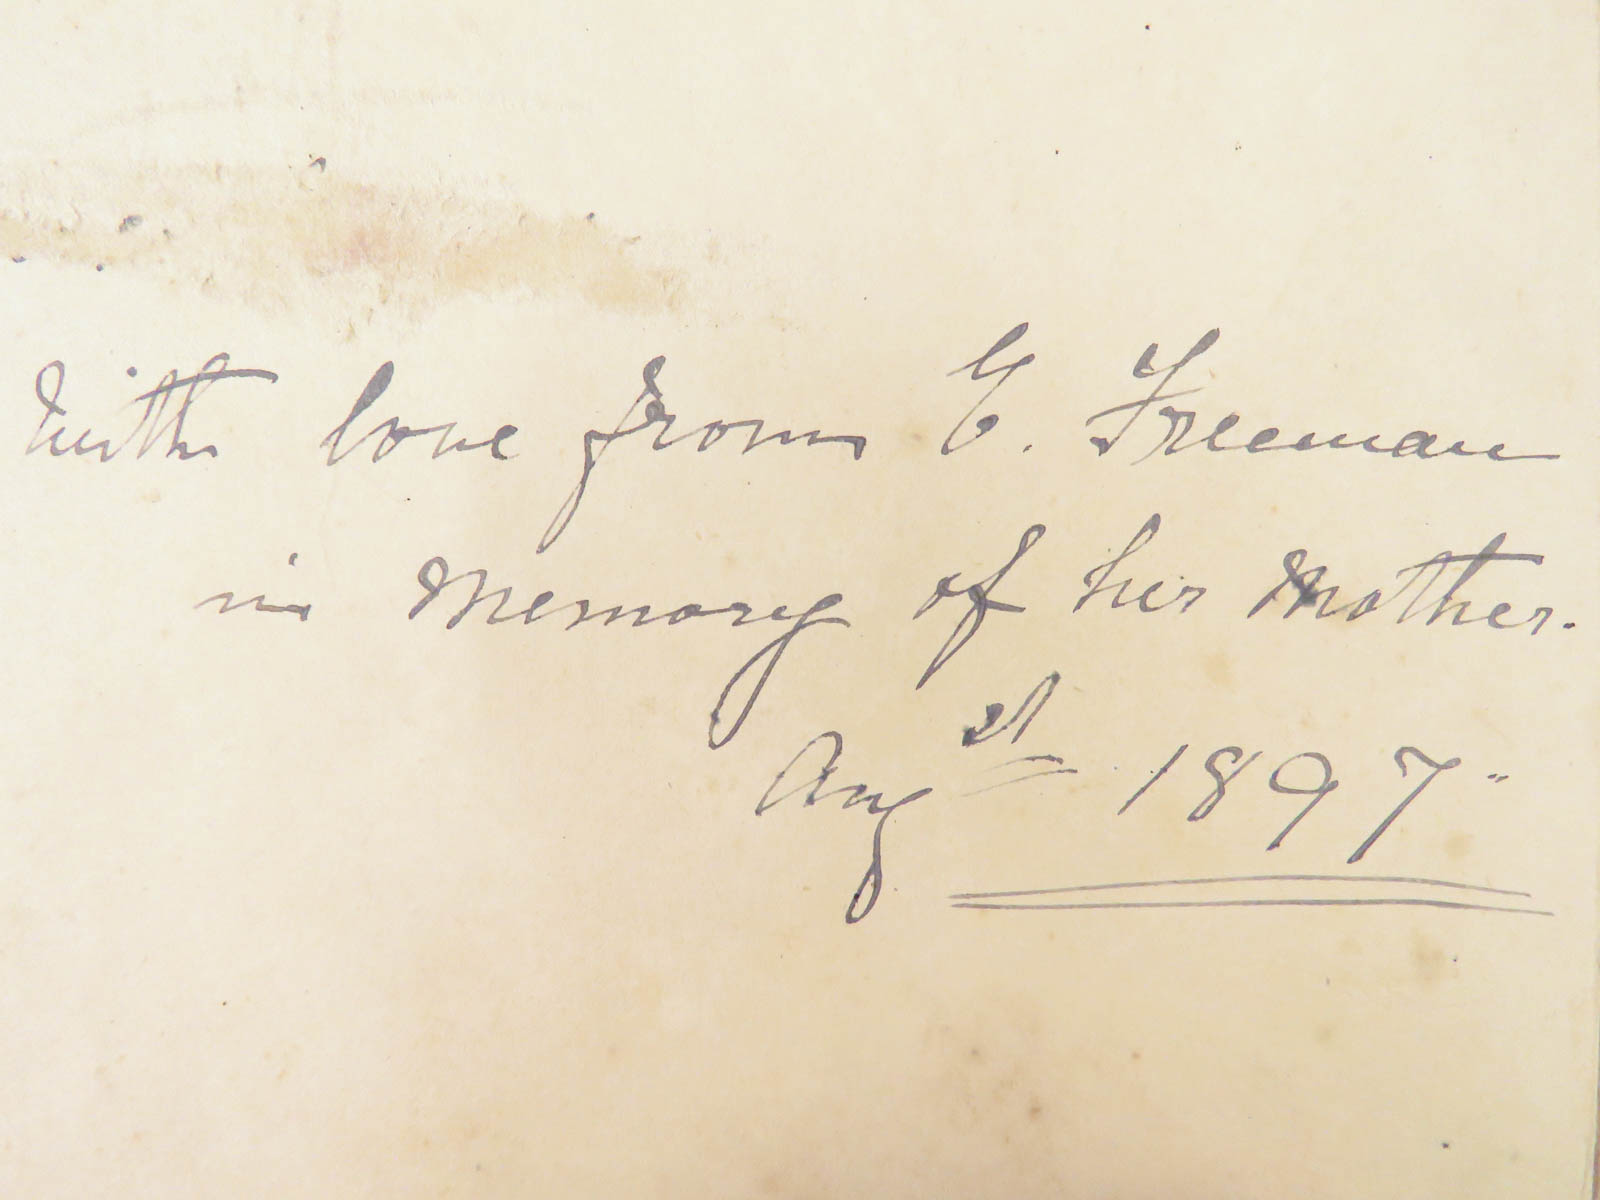 With love from G. Freeman
in Memory of her Mother.
Augst 1897